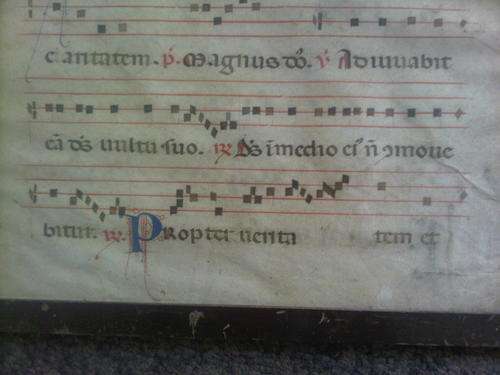 caritatem. p. Magnus dō. v Adiuuabit
eā ds uultu suo. R Ds ī medio eiꝰ n̄ ꝯmoue
bitur. R. Propter uerita tem et